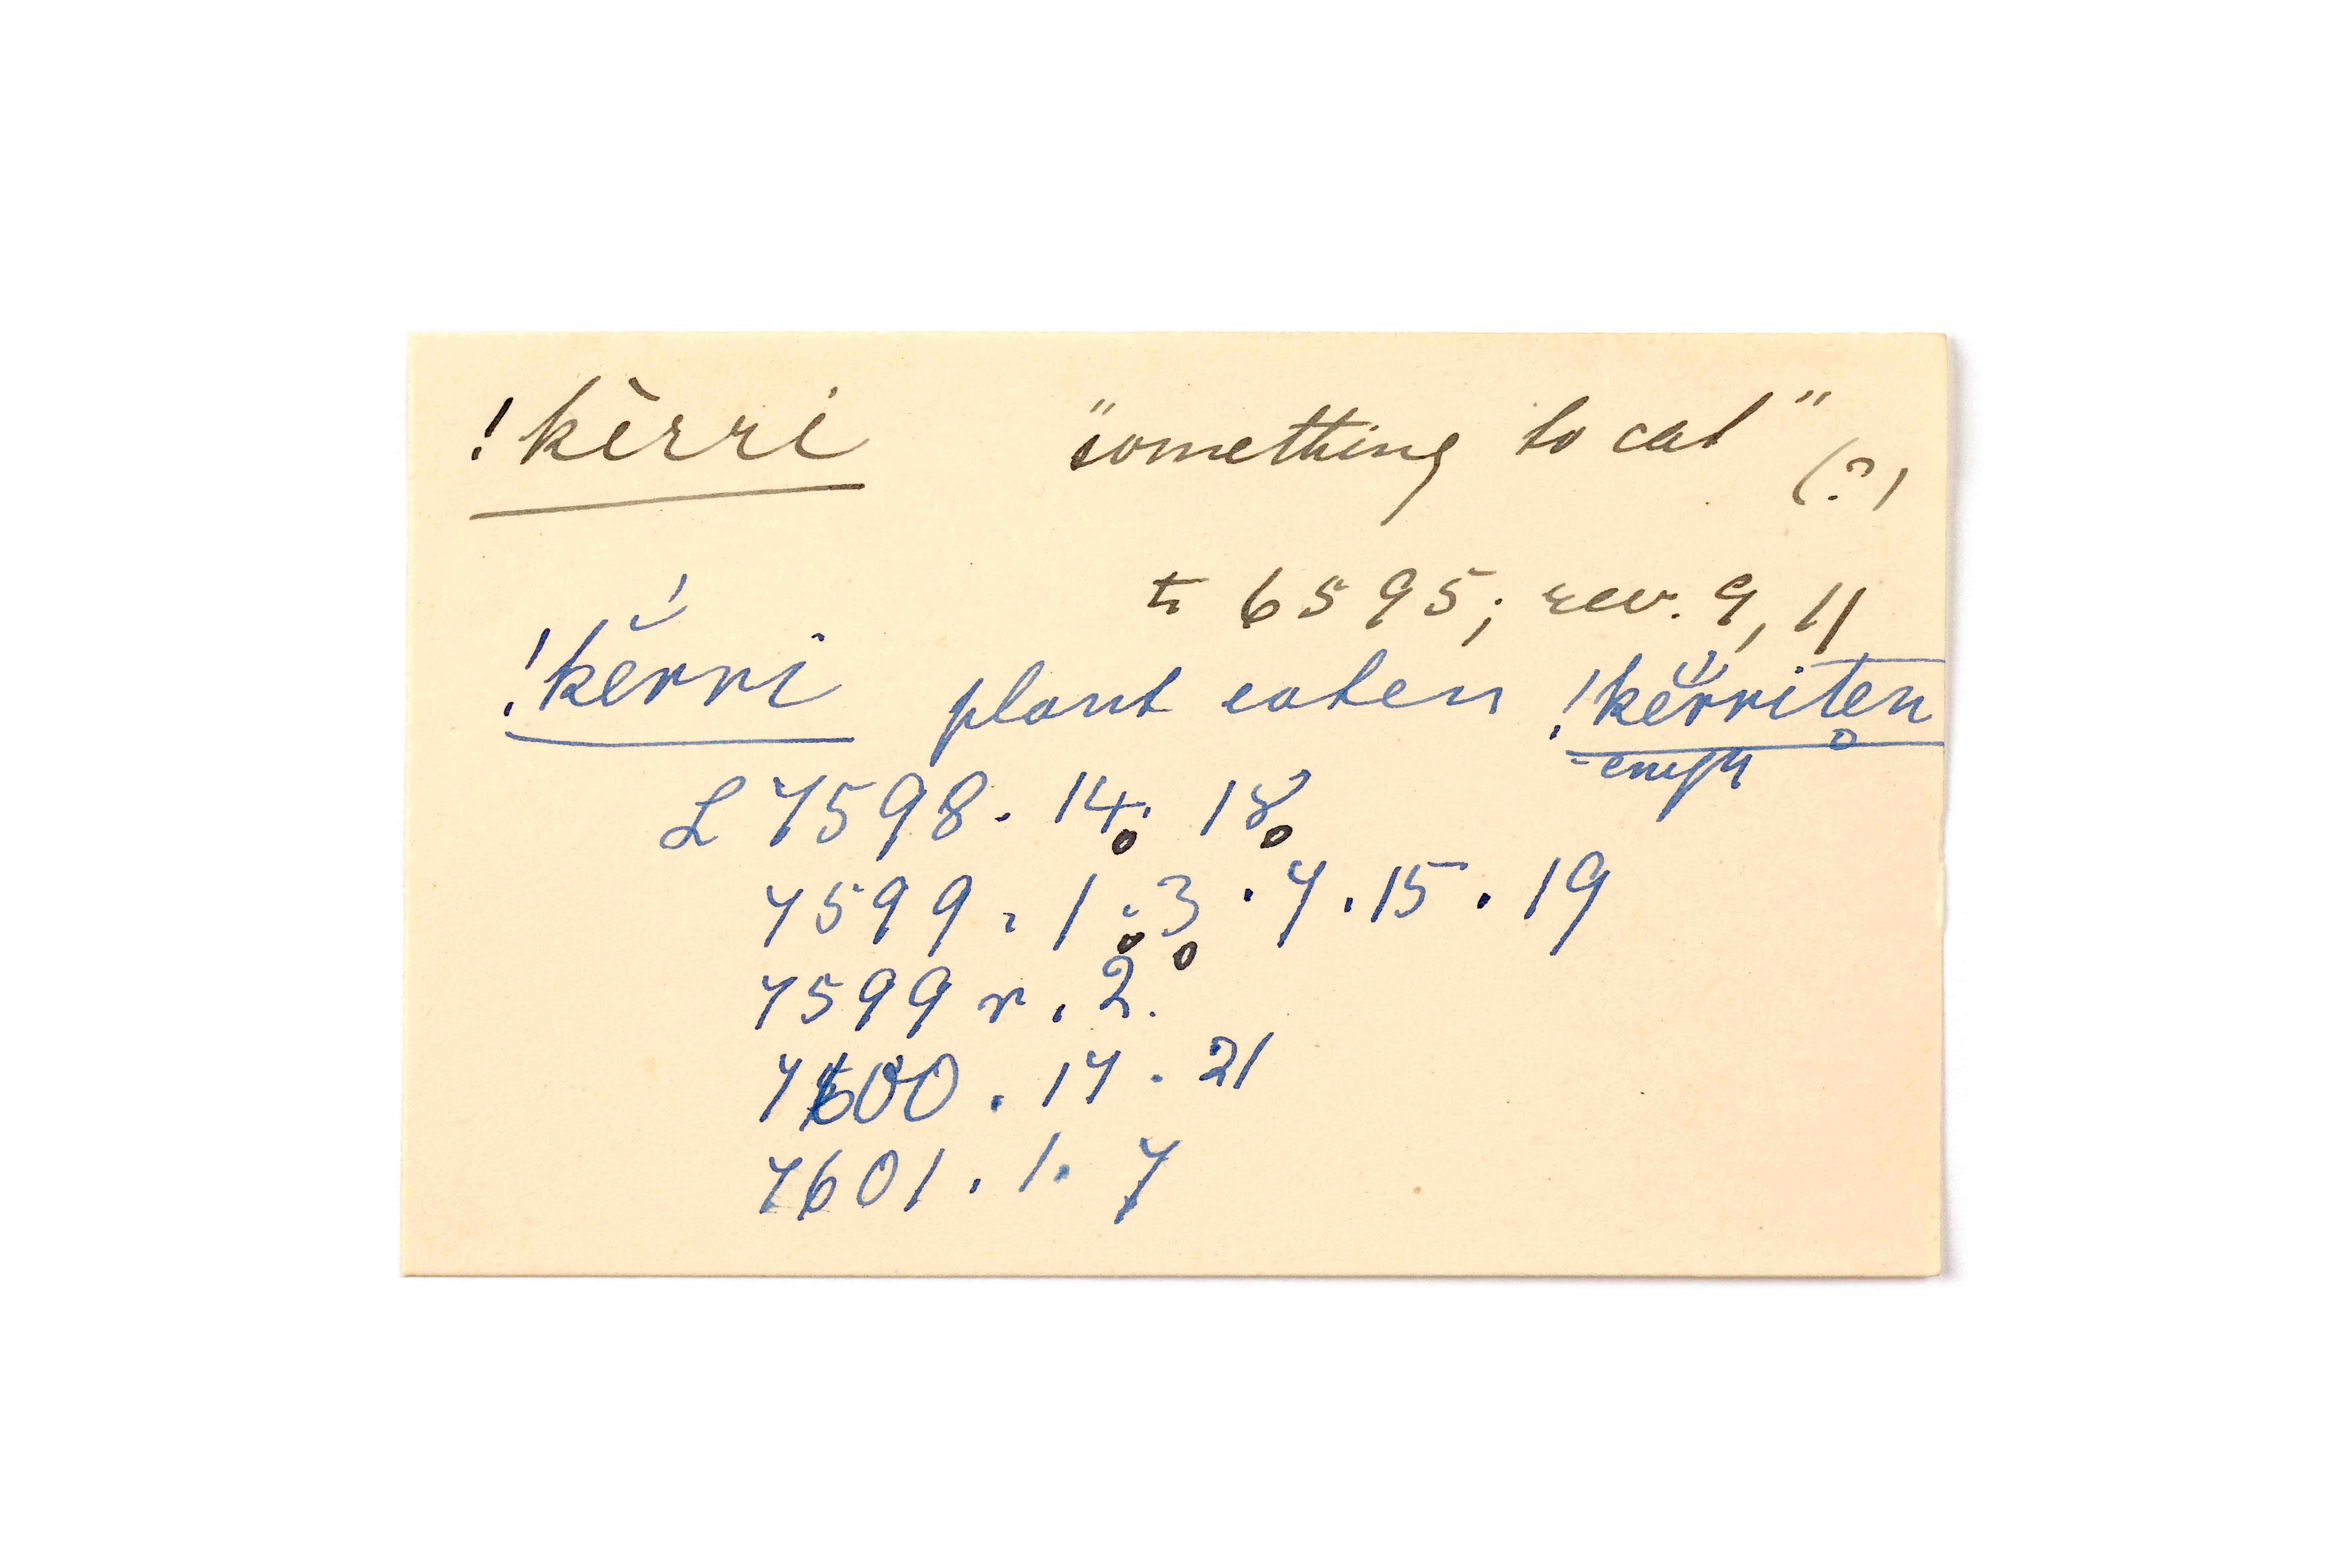 !kērri "something to eat" (?)
6595; rev. 9, 11
!kĕ́rri plant eaten !kĕ́rriten
emph
L 7598. 14. 18
7599. 1. 3. 7. 15. 19
7599 r. 2.
7600. 17. 21
7601. 1. 7